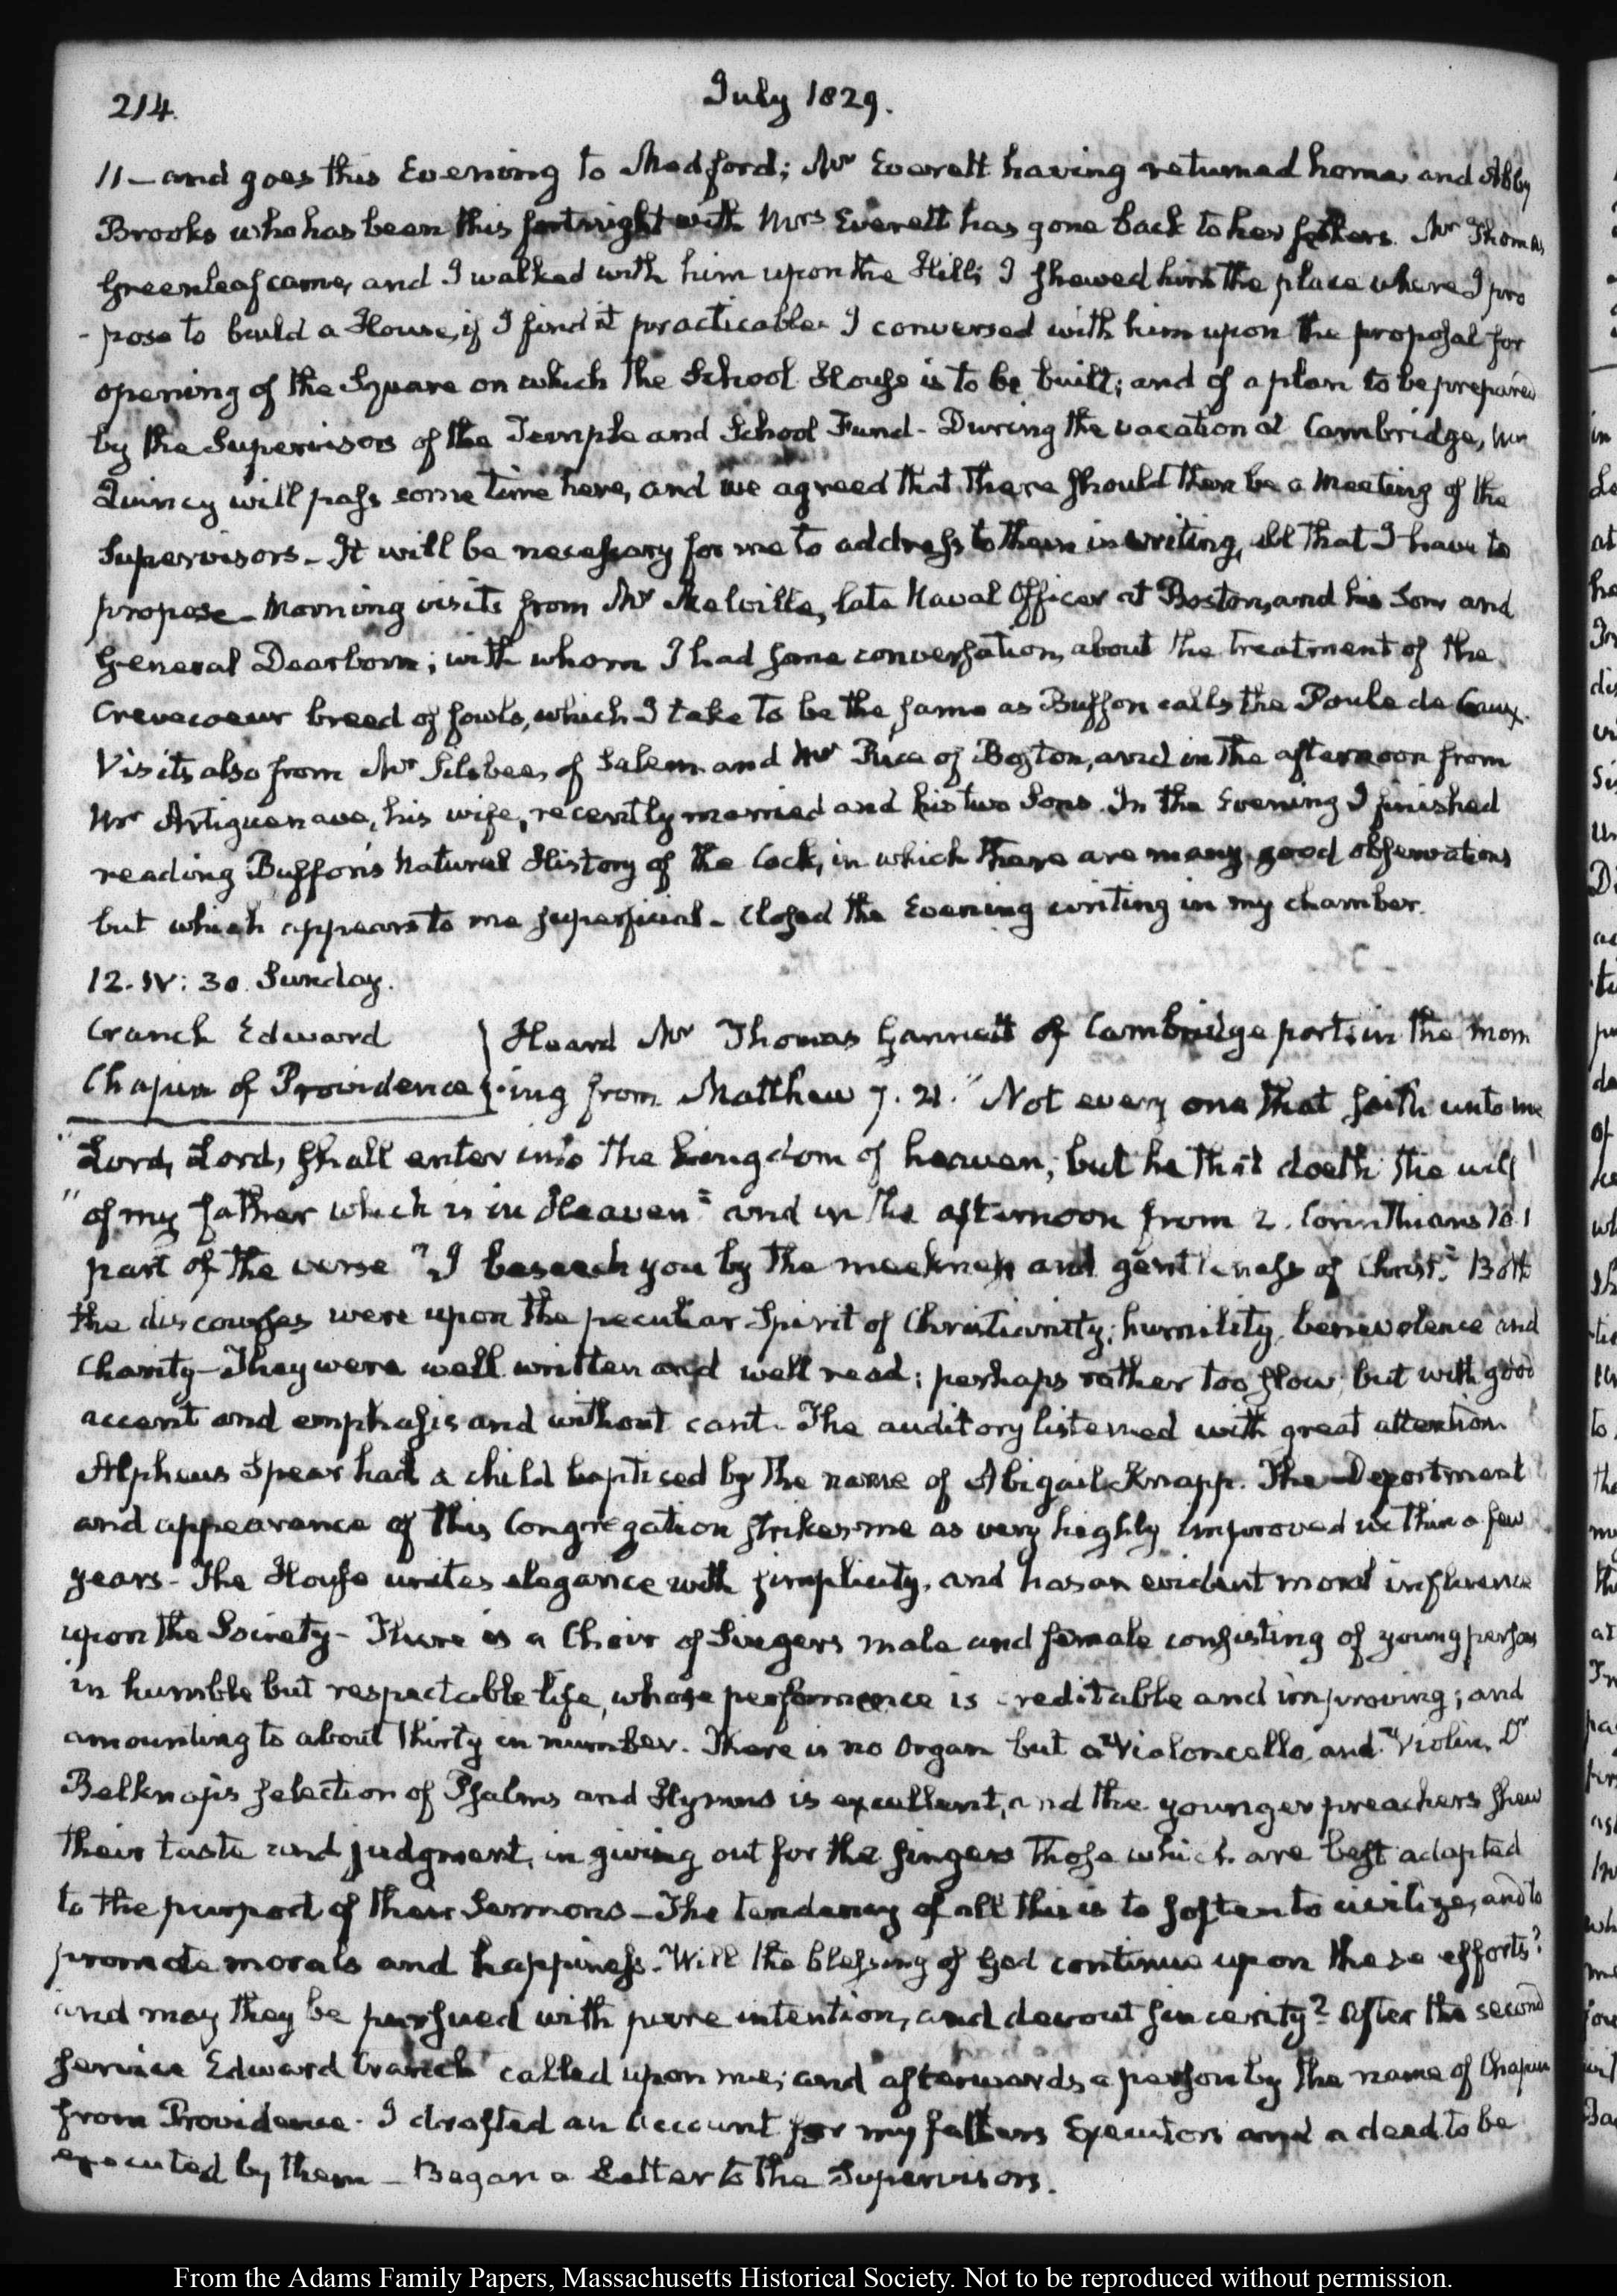 214.
July 1829.
11 — and goes this Evening to Medford; Mr Everett having returned home, and Abby
Brooks who has been this fortnight with Mrs Everett has gone back to her fathers. Mr Thomas
Greenleaf came, and I walked with him upon the Hill; I shewed him the place where I pro
-pose to build a House, if I find it practicable. I conversed with him upon the proposal for
opening of the Square on which the School House is to be built; and of a plan to be prepared
by the Supervisors of the Temple and School Fund - During the vacation at Cambridge, Mr
Quincy will pass some time here, and we agreed that there should then be a Meeting of the
Supervisors - It will be necessary for me to address to them in writing, all that I have to
propose - Morning visits from Mr Melville, late Naval Officer at Boston, and his Son and
General Dearborn; with whom I had some conversation, about the treatment of the
Crevecoeur breed of fowls, which I take to be the same as Buffon calls the Poule de Caux.
Visits also from Mr Silsbee, of Salem and Mr Rice of Boston, and in the afternoon from
Mr Artiguenave, his wife, recently married and his two Sons. In the Evening I finished
reading Buffon's Natural History of the Cock, in which there are many good observations
but which appears to me superficial - Closed the Evening writing in my chamber.
12. IV: 30. Sunday.
Cranch Edward
Chapin of Providence
Heard Mr Thomas Gannett of Cambridge port, in the morn
-ing from Matthew 7. 21. "Not every one that saith unto me
"Lord, Lord, shall enter into the kingdom of heaven; but he that doeth the will
"of my father which is in Heaven" and in the afternoon from 2. Corinthians 10. 1
part of the verse "I beseech you by the meekness and gentleness of Christ." Both
the discourses were upon the peculiar Spirit of Christianity; humility, benevolence and
Charity - They were well written and well read; perhaps rather too slow, but with good
accent and emphasis and without cant - The auditory listened with great attention.
Alpheus Spear had a child baptised by the name of Abigail Knapp. The Deportment
and appearance of this Congregation strikes me as very highly improved within a few
years - The House unites elegance with simplicity, and has an evident moral influence
upon the Society - There is a Choir of Singers male and female consisting of young persons
in humble but respectable life, whose performance is creditable and improving; and
amounting to about thirty in number. There is no Organ but a Violoncello and Violin. Dr
Belknap's selection of Psalms and Hymns is excellent, and the younger preachers shew
their taste and judgment, in giving out for the singers those which are best adapted
to the purport of their Sermons - The tendency of all this is to soften to civilize, and to
promote morals and happiness. Will the blessing of God continue upon these efforts?
and may they be pursued with pure intention, and devout sincerity? After the second
service Edward Cranch called upon me; and afterwards a person by the name of Chapin
from Providence. I drafted an Account for my fathers Executors and a deed to be
executed by them - Began a Letter to the Supervisors.
From the Adams Family Papers, Massachusetts Historical Society. Not to be reproduced without permission.